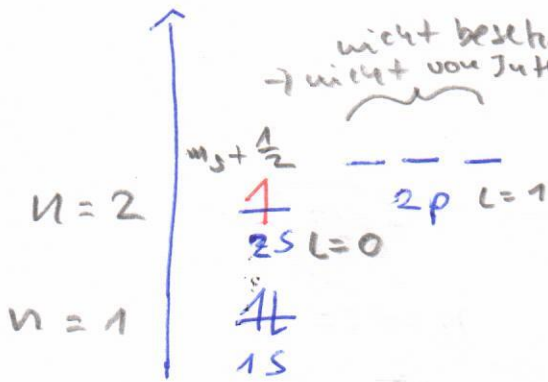 nicht beset
→ nicht von Int
ms + 1/2
n = 2
2p L = 1
2s L = 0
n = 1
1s